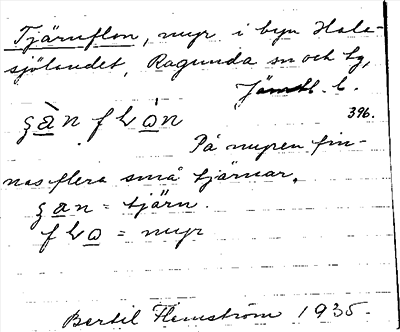 Tjärnflon, myr i byn Hole-
sjölandet, Ragunda sn och tg,
Jämtl. l.
396.
På myren fin-
nas flera små tjärnar.
= tjärn.
= myr
Bertil Flemström 1935.